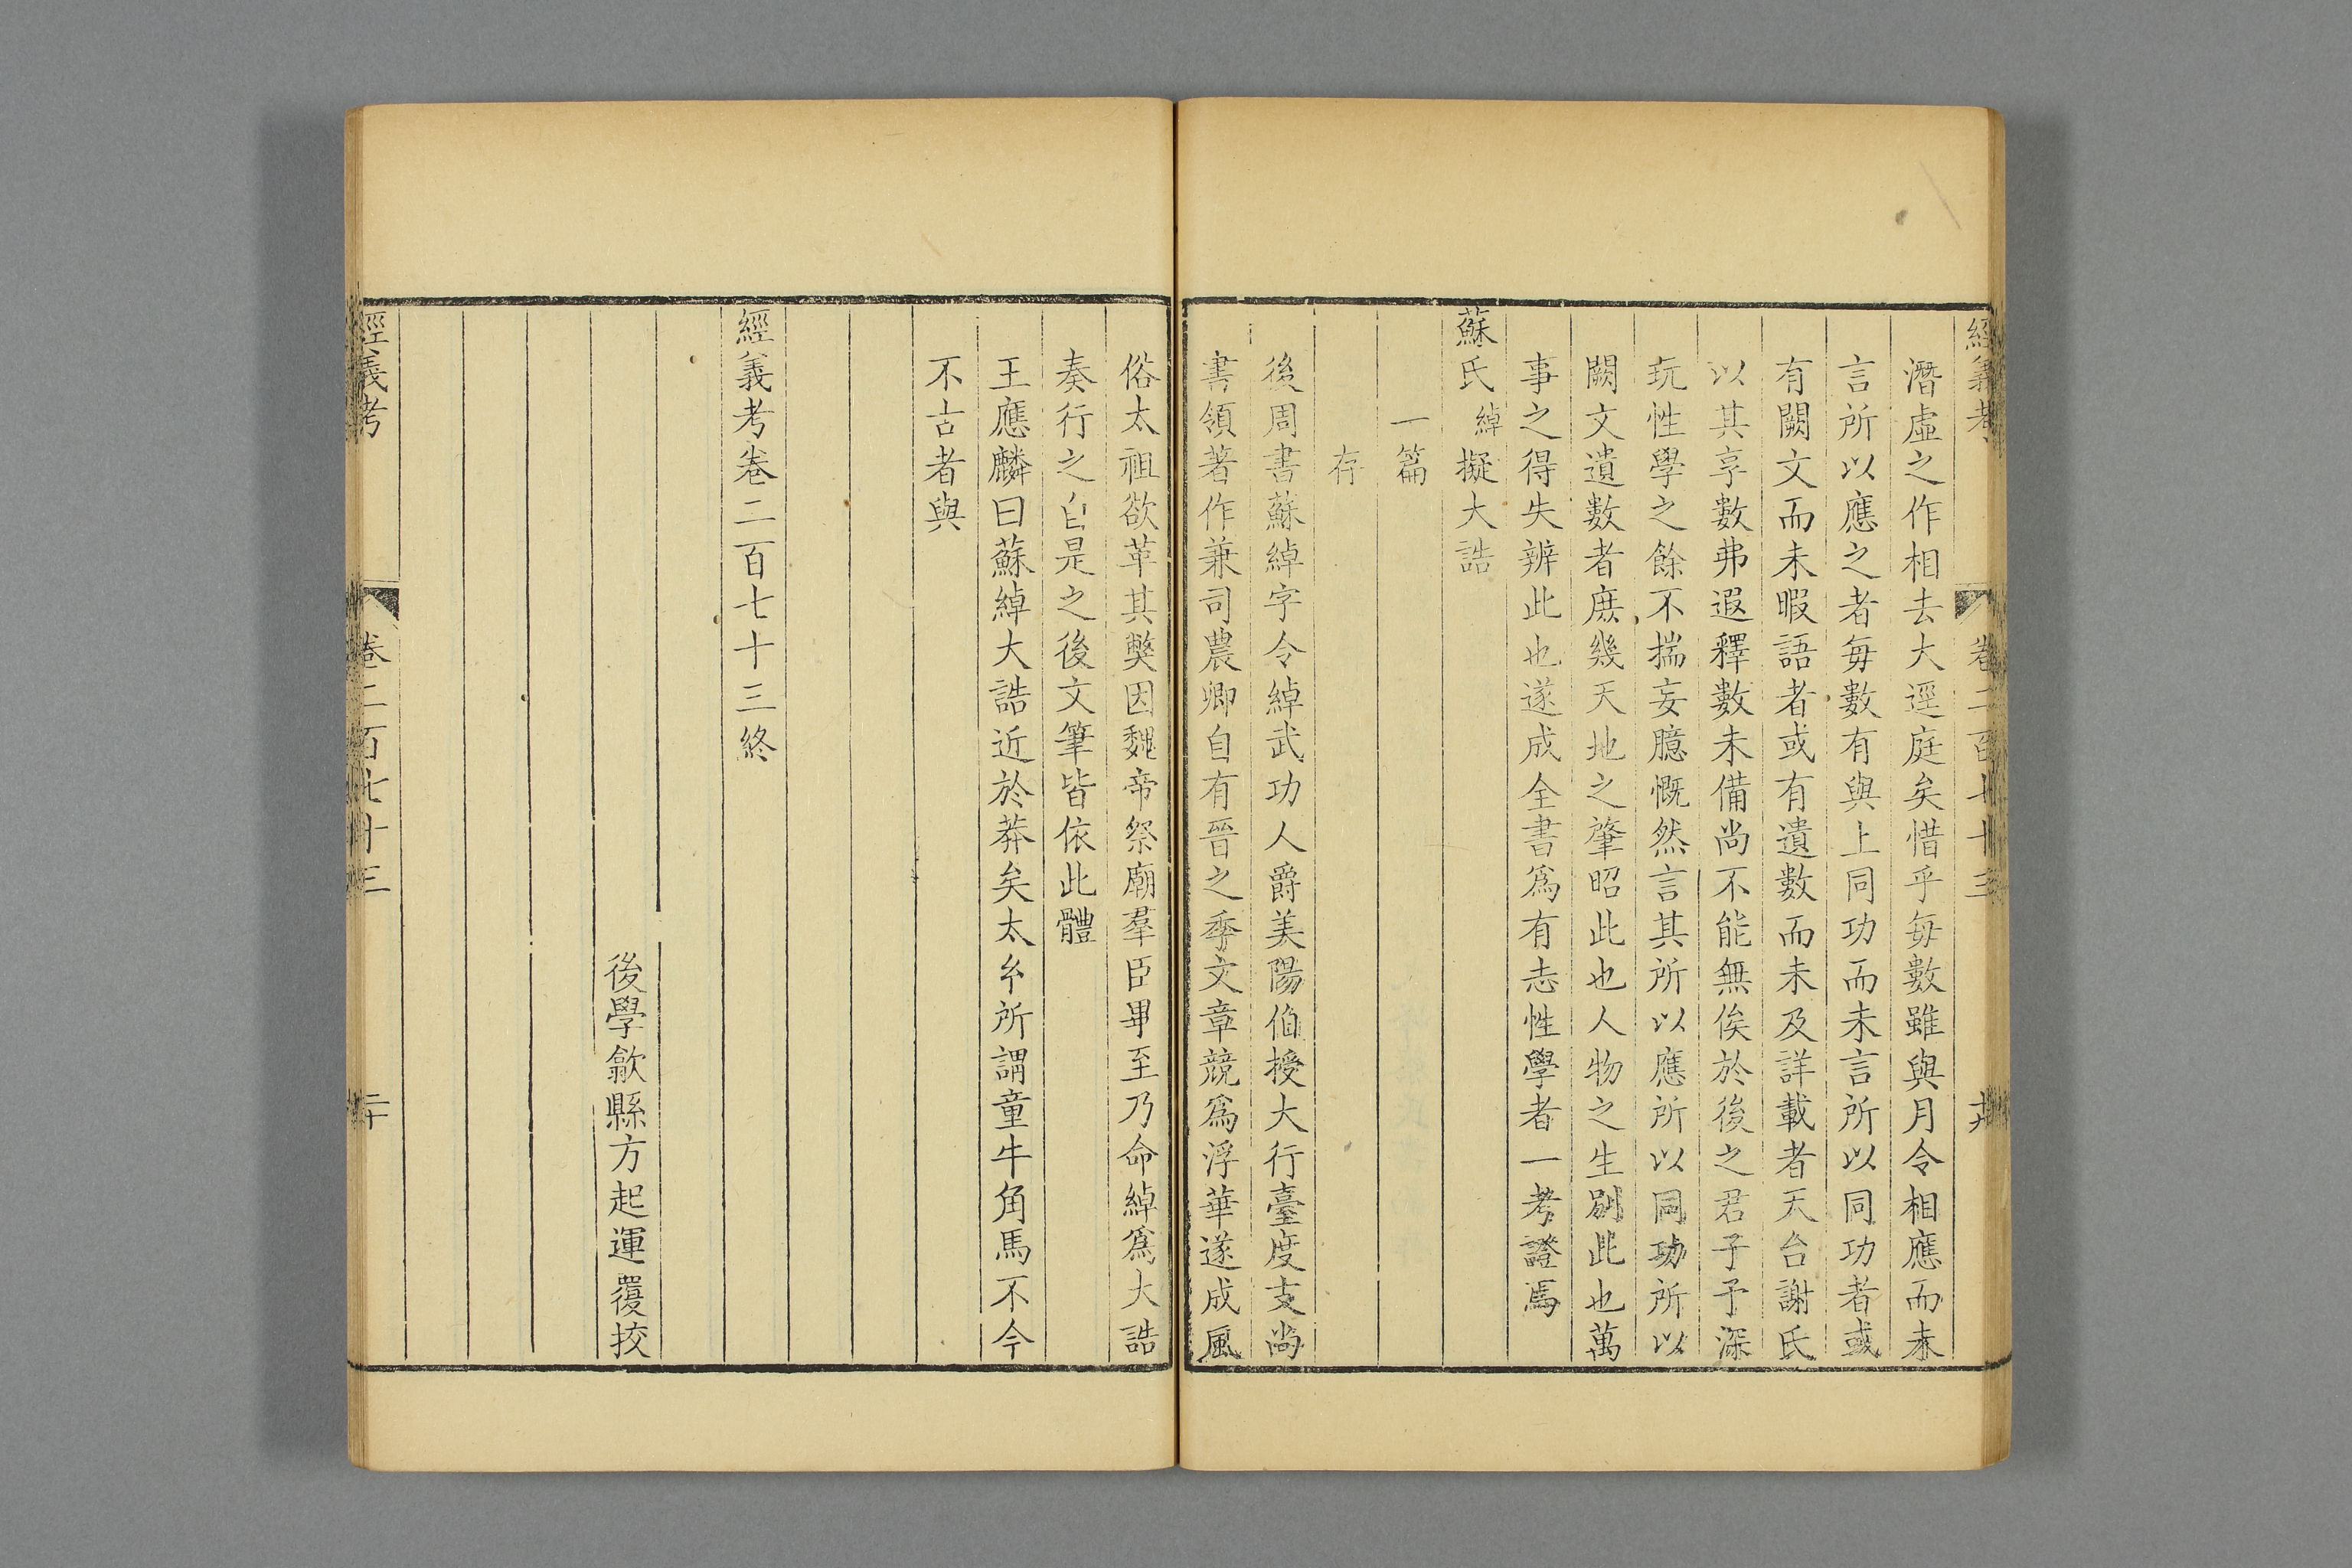 經義考 卷二百七十三 十九
潛虛之作相去大逕庭矣惜乎毎數雖與月令相應而未
言所以應之者毎數有與上同功而未言所以同功者或
有闕文而未暇語者或有遺數而未及詳載者天台謝氏
以其享數弗遐釋數未備尚不能無俟於後之君子予深
玩性學之餘不揣妄臆慨然言其所以應所以同功所以
闕文遺數者庶幾天地之肇昭此也人物之生別此也萬
事之得失辨此也遂成全書爲有志性學者一考證焉
蘇氏綽擬大誥
一篇
存
後周書蘇綽字令綽武功人爵美陽伯授大行臺度支尚
書領著作兼司農卿自有晉之季文章競爲浮華遂成風
俗太祖欲革其獘因魏帝祭廟羣臣畢至乃命綽爲大誥
奏行之自是之後文筆皆依此體
王應麟曰蘇綽大誥近於莽矣太𤣥所謂童牛角馬不今
不古者與
經義考卷二百七十三終
後學歙縣方起運覆挍
經義考 卷二百七十三 二十